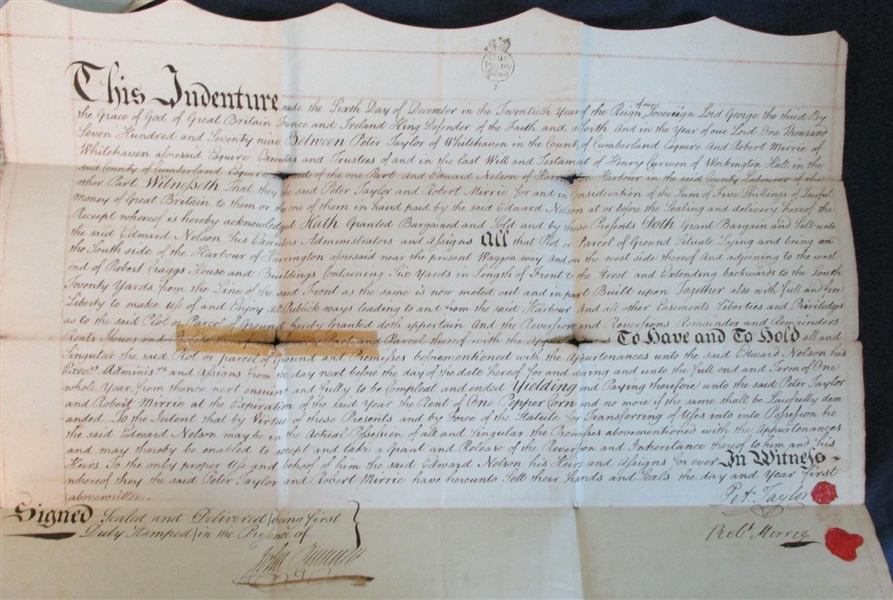 This Indenture made the Sixth Day of December in the Twentieth Year of the Reign of our Sovereign Lord George the third By
the Grace of God of Great Britain France and Ireland King Defender of the Faith and so forth And in the Year of our Lord One Thousand
Seven Hundred and Seventy nine Between Peter Taylor of Whitehaven in the County of Cumberland Esquire and Robert Mirrie of
Whitehaven aforesaid Esquire Executors and Trustees of and in the Last Will and Testament of Henry Curwen of Workington Hall in the
said County of Cumberland Esquire of the one Part and Edward Nelson of Harrington Harbour in the said County Labourer of the
other Part Witnesseth That they the said Peter Taylor and Robert Mirrie for and in Consideration of the Sum of Five Shillings of Lawful
money of Great Britain to them or one of them in hand paid by the said Edward Nelson at or before the Sealing and delivery hereof the
Receipt whereof is hereby acknowledged Hath Granted Bargained and Sold and by these Presents Doth Grant Bargain and Sell unto
the said Edward Nelson his Executors Administrators and Assigns All that Plot or Parcel of Ground Situate Lying and being on
the South side of the Harbour of Harrington aforesaid near the present Waggon way and on the west side thereof And adjoining to the west
end of Robert Craggs House and Buildings Containing Six Yards in Length of Front to the Street and Extending backwards to the South
Twenty Yards from the Line of the said Front as the same is now meted out and in part Built upon Together also with full and free
Liberty to make use of and Enjoy All Publick ways leading to and from the said Harbour And all other Easements Liberties and Priviledges
as to the said Plot or Parcel of Ground hereby Granted doth appertain And the Reversion and Reversions Remainder and Remainders
Rents Issues and Part and Parcel thereof with the To Have and To Hold all and
Singular the said Plot or parcel of Ground and Premisses beforementioned with the Appurtenances unto the said Edward Nelson his
Execrs Administrs and Assigns from the day next before the day of the date hereof for and during and unto the full end and Term of One
whole Year from thence next ensuing and fully to be Compleat and ended Yielding and Paying therefore unto the said Peter Taylor
and Robert Mirrie at the Expiration of the said Year the Rent of One Pepper Corn and no more if the same shall be Lawfully dem
anded. To the Intent that by Virtue of these Presents and by Force of the Statute for Transferring of Uses into Possession he
the said Edward Nelson may be in the Actual Possession of all and Singular the Premisses abovementioned with the Appurtenances
and may thereby be enabled to accept and take a Grant and Release of the Reversion and Inheritance thereof to him and his
Heirs To the only proper Use and behoof of him the said Edward Nelson his Heirs and Assigns for ever In Witness
whereof they the said Peter Taylor and Robert Mirrie have hereunto Sett their hands and Seals the day and Year first
abovewritten.
Petr Taylor
Signed Sealed and Delivered being first
Duly Stamped in the Presence of
Robt Mirrie
John